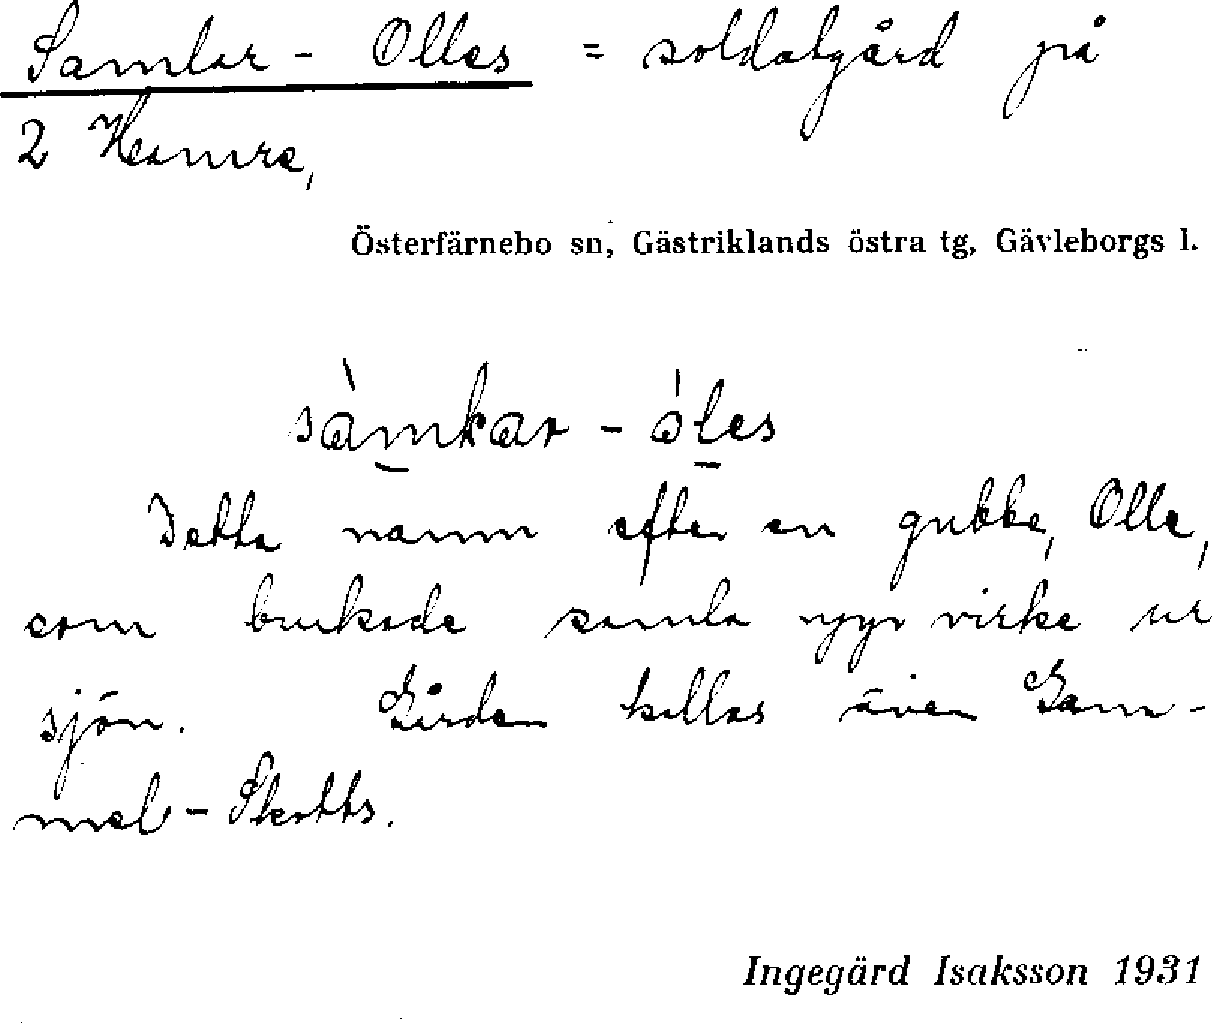 Samlar - Olles = soldatgård på
2 Hemmre,
Österfärnebo sn, Gästriklands östra tg, Gävleborgs l.
sàmkar - óles
Detta namn efter en gubbe, Olle,
som brukade samla upp virke ur
sjön. Gården kallas även Gam-
mel - Skotts.
Ingegärd Isaksson 1931